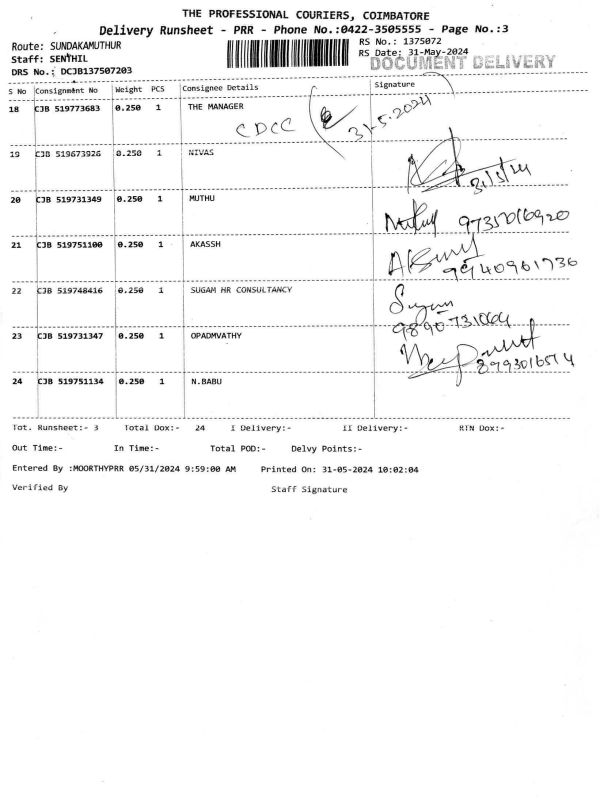 THE PROFESSIONAL COURIERS, COIMBATORE
Delivery Runsheet - PRR - Phone No.:0422-3505555 - Page No.:3
Route: SUNDAKAMUTHUR
RS No.: 1375072
Staff: SENTHIL
RS Date: 31-May-2024
DOCUMENT DELIVERY
DRS No.: DCJB137507203
S No Consignment No Weight PCS Consignee Details Signature
18 CJB 519773683 0.250 1 THE MANAGER
CDCC 31-5-2024
19 CJB 519673926 0.250 1 NIVAS
31/5/24
20 CJB 519731349 0.250 1 MUTHU
21 CJB 519751100 0.250 1 AKASSH
22 CJB 519748416 0.250 1 SUGAM HR CONSULTANCY
23 CJB 519731347 0.250 1 OPADMVATHY
24 CJB 519751134 0.250 1 N.BABU
Tot. Runsheet:- 3 Total Dox:- 24 I Delivery:- II Delivery:- RTN Dox:-
Out Time:- In Time:- Total POD:- Delvy Points:-
Entered By :MOORTHYPRR 05/31/2024 9:59:00 AM Printed On: 31-05-2024 10:02:04
Verified By Staff Signature